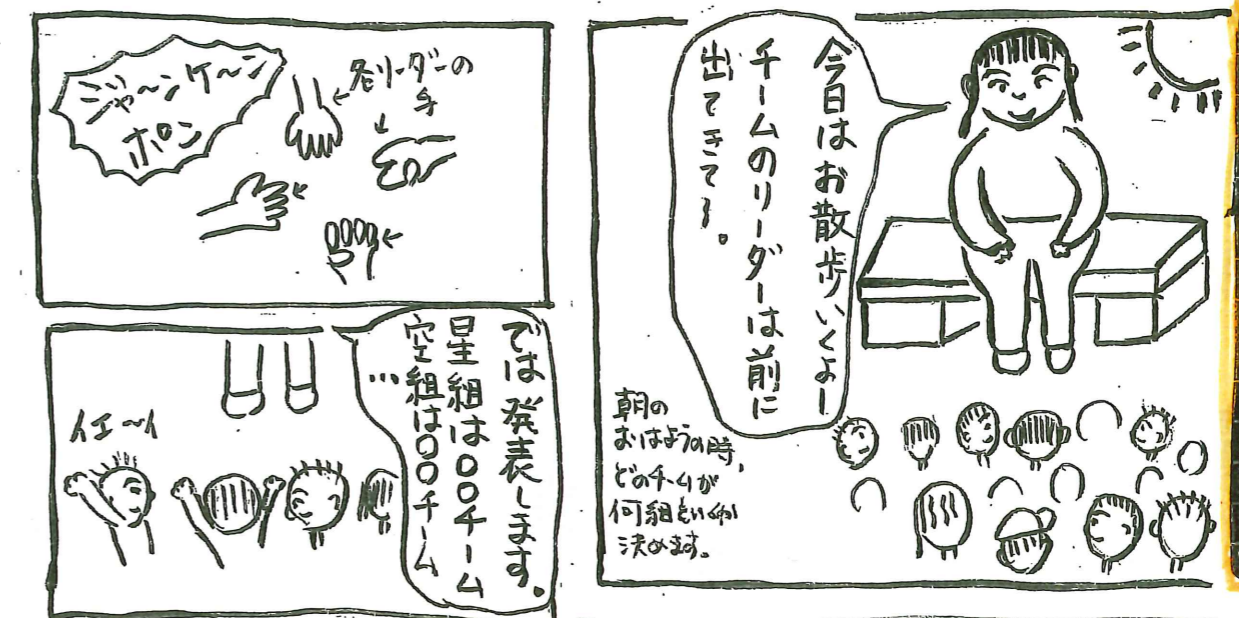 今日はお散歩いくよー
チームのリーダーは前に
出てきて〜。
朝の
おはようの時、
どのチームが
何組といくか
決めます。
ジャ〜ンケ〜ン
ポン
各リーダーの
手
では発表します。
星組は〇〇チーム
空組は〇〇チーム
…
イエ〜イ